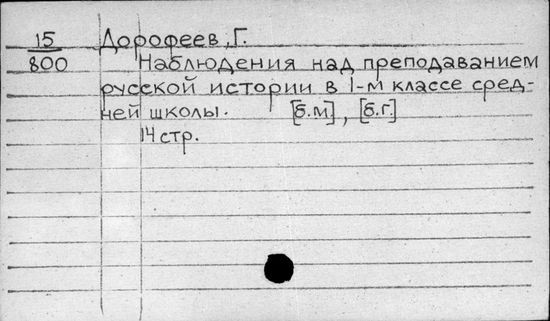 15 Дорофеев, Г.
800 Наблюдения над преподаванием
русской истории в 1-м классе сред-
ней школы. [б.м], [б.г.]
14 стр.